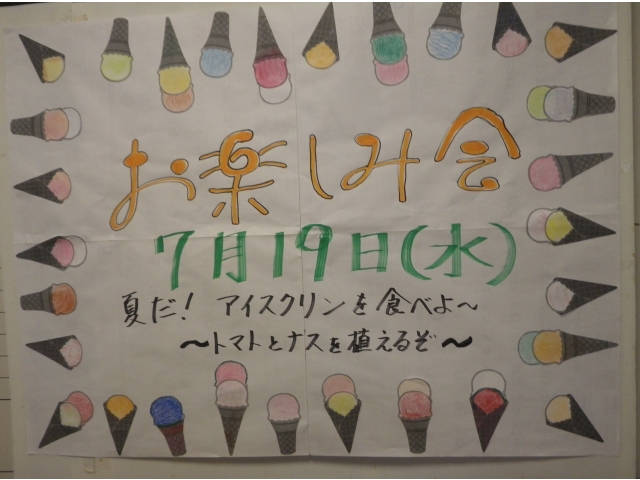 お楽しみ会
7月19日(水)
夏だ! アイスクリンを食べよ〜
〜トマトとナスを植えるぞ〜